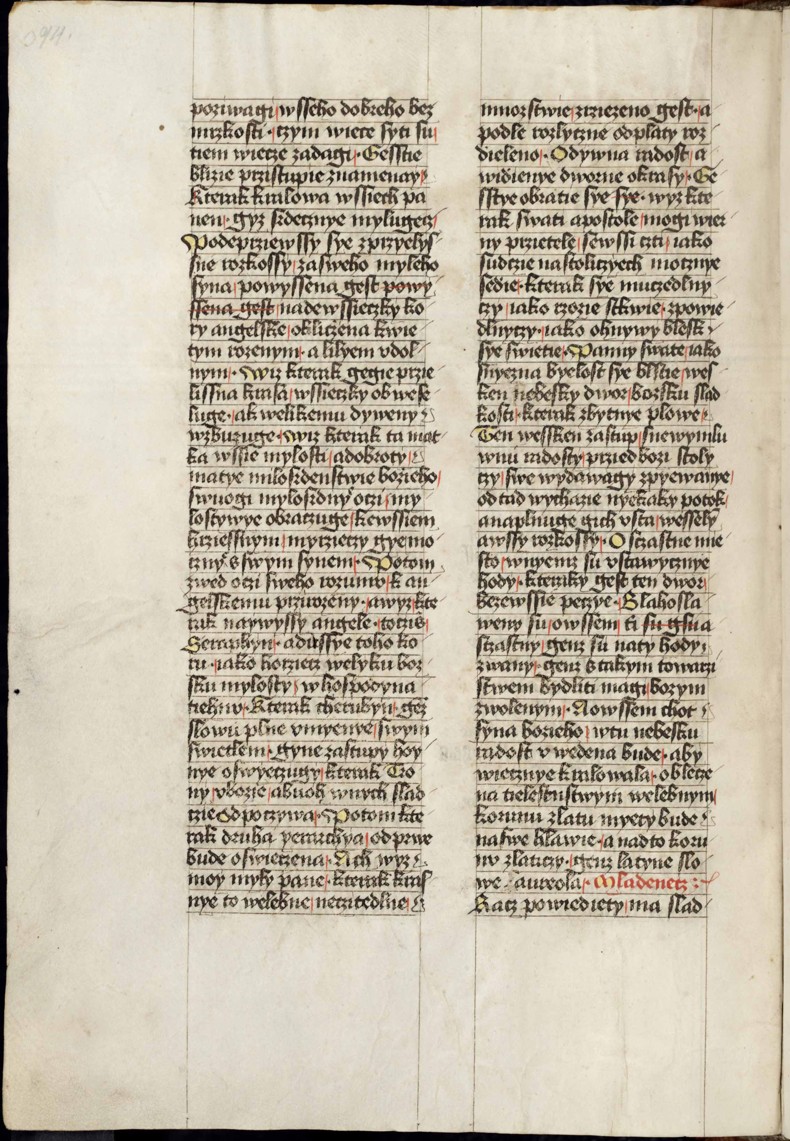 094.
poziwagi wsseho dobreho bez
mrzkosti · czym wiece syti su
tiem wiecze zadagi · Gesstie
blizie przistupie znamenay
Kterak kralowa wssiech pa
nen · gyz srdecznye mylugecz
Podeprziewssy sye z przyelys
sne rozkossy za sweho myleho
syna powyssena gest powy
ssena gest nadewssieczky ko
ry angelske okliczena kwie
tym rozenym · a lilyem vdol
nym · Wiz kterak gegie przie
lissna krasa wssieczky obwese
luge · ak welikemu dyweny
wzbuzuge · Wiz kterak ta mat
ka wssie mylosti a dobroty
matye milosrdenstwie bozieho
swuogi mylosrdny oczi my
lostywye obraczuge k ewssiem
krziessnym myrzieczy gye mo
czny s swym synem · Potom
zwed oczi sweho rozumu k an
gelskemu przirozeny · a wyz kte
rak naywyssy angele · toczis
Seraphyn · a dussye toho ko
ru · iako horziecz welyku boz
sku mylosty w hospodyna
tiehnu · Kterak cherubyn · gez
slowu plne vmyenye swym
swietlem · gyne zastupy hoy
nye oswyeczugy kterak Tro
ny vbozie a buoh wnych slad
czie odpoczywa · Potom kte
rak druha yerarchya od prwe
bude oswieczena · Ach wyz
moy myly pane · kterak kras
nye to welebne neczitedlne
mnozstwie zrziezeno gest · a
podle rozlyczne odplaty roz
dieleno · O dywna radost a
widienye dworne okrasy · Ge
sstye obratie sye sye · wyz kte
rak swati apostole mogi wier
ny przietele sewssi czti iako
sudczie na stoliczyech mocznye
sedie · kterak sye muczedlny
czy iako rzozie stkwie · zpowie
dlnyczy · iako ohnywy blesk
sye swietie · Panny swate iako
snyezna byelost sye blstie wes
ken nebesky dwor bozsku slad
kosti · kterak zbytnye plowe
Ten wessken zastup snewymlu
wnu radosty przied bozi stoly
czy swe wydawagy zpyewanye
odtad wychazie nyekaky potok
a naplniuge gich vsta wessely
a wssy rozkossy · O sczastne mie
sto wnyemz su vstawycznye
hody · kteraky gest ten dwor
bezewssie peczye · Blahosla
weny su owssem ti su gsua
sczastny genz su na ty hody
zwany · genz s takym towarzi
stwem bydliti magi bozym
zwolenym · A owssem chot
syna bozieho wtu nebesku
radost vwedena bude · aby
wiecznye kralowala · oblecze
na tielestnstwym welebnym
korunu zlatu myety bude
na swe hlawie · a nadto koru
nu zlaticzy · genz latyne slo
we aureola · Mladenecz
Racz powiediety ma slad